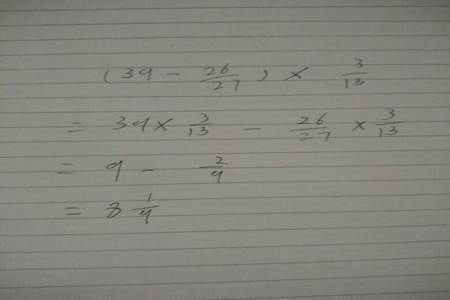 (39 - 26/27) × 3/13
= 39 × 3/13 - 26/27 × 3/13
= 9 - 2/9
= 8 1/9